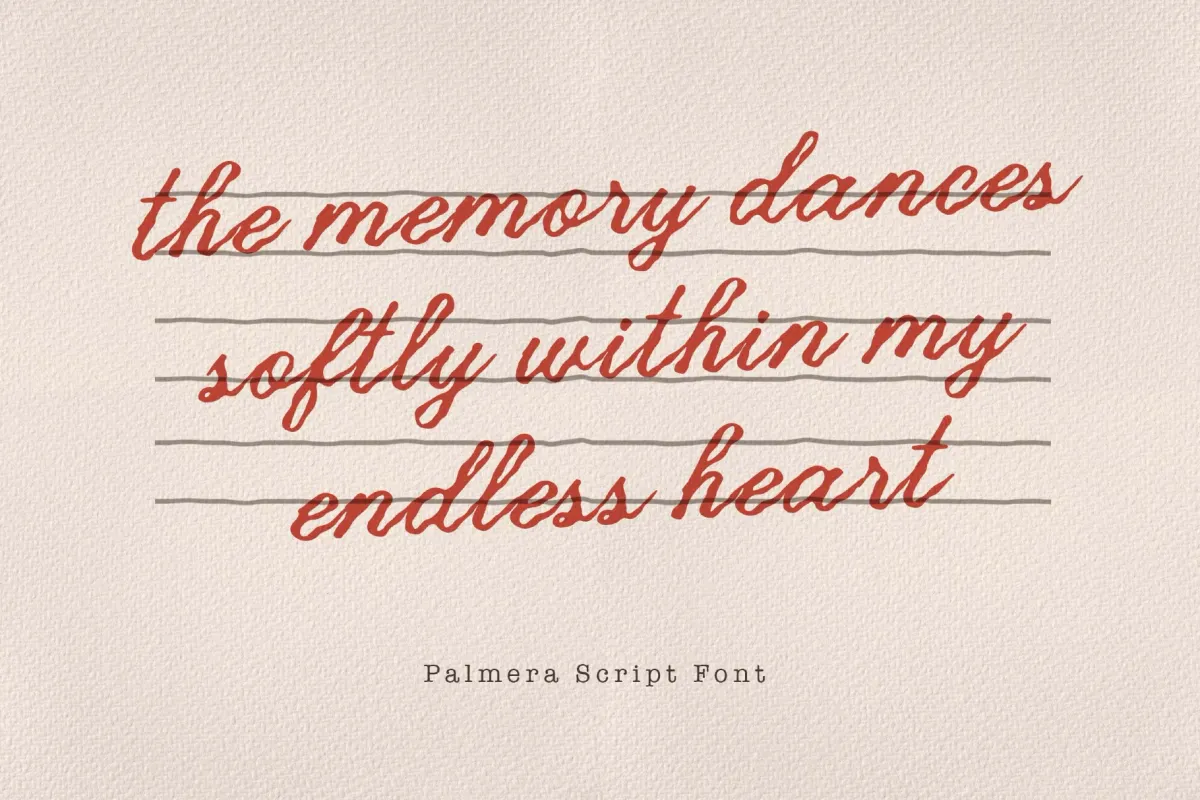 the memory dances
softly within my
endless heart
Palmera Script Font